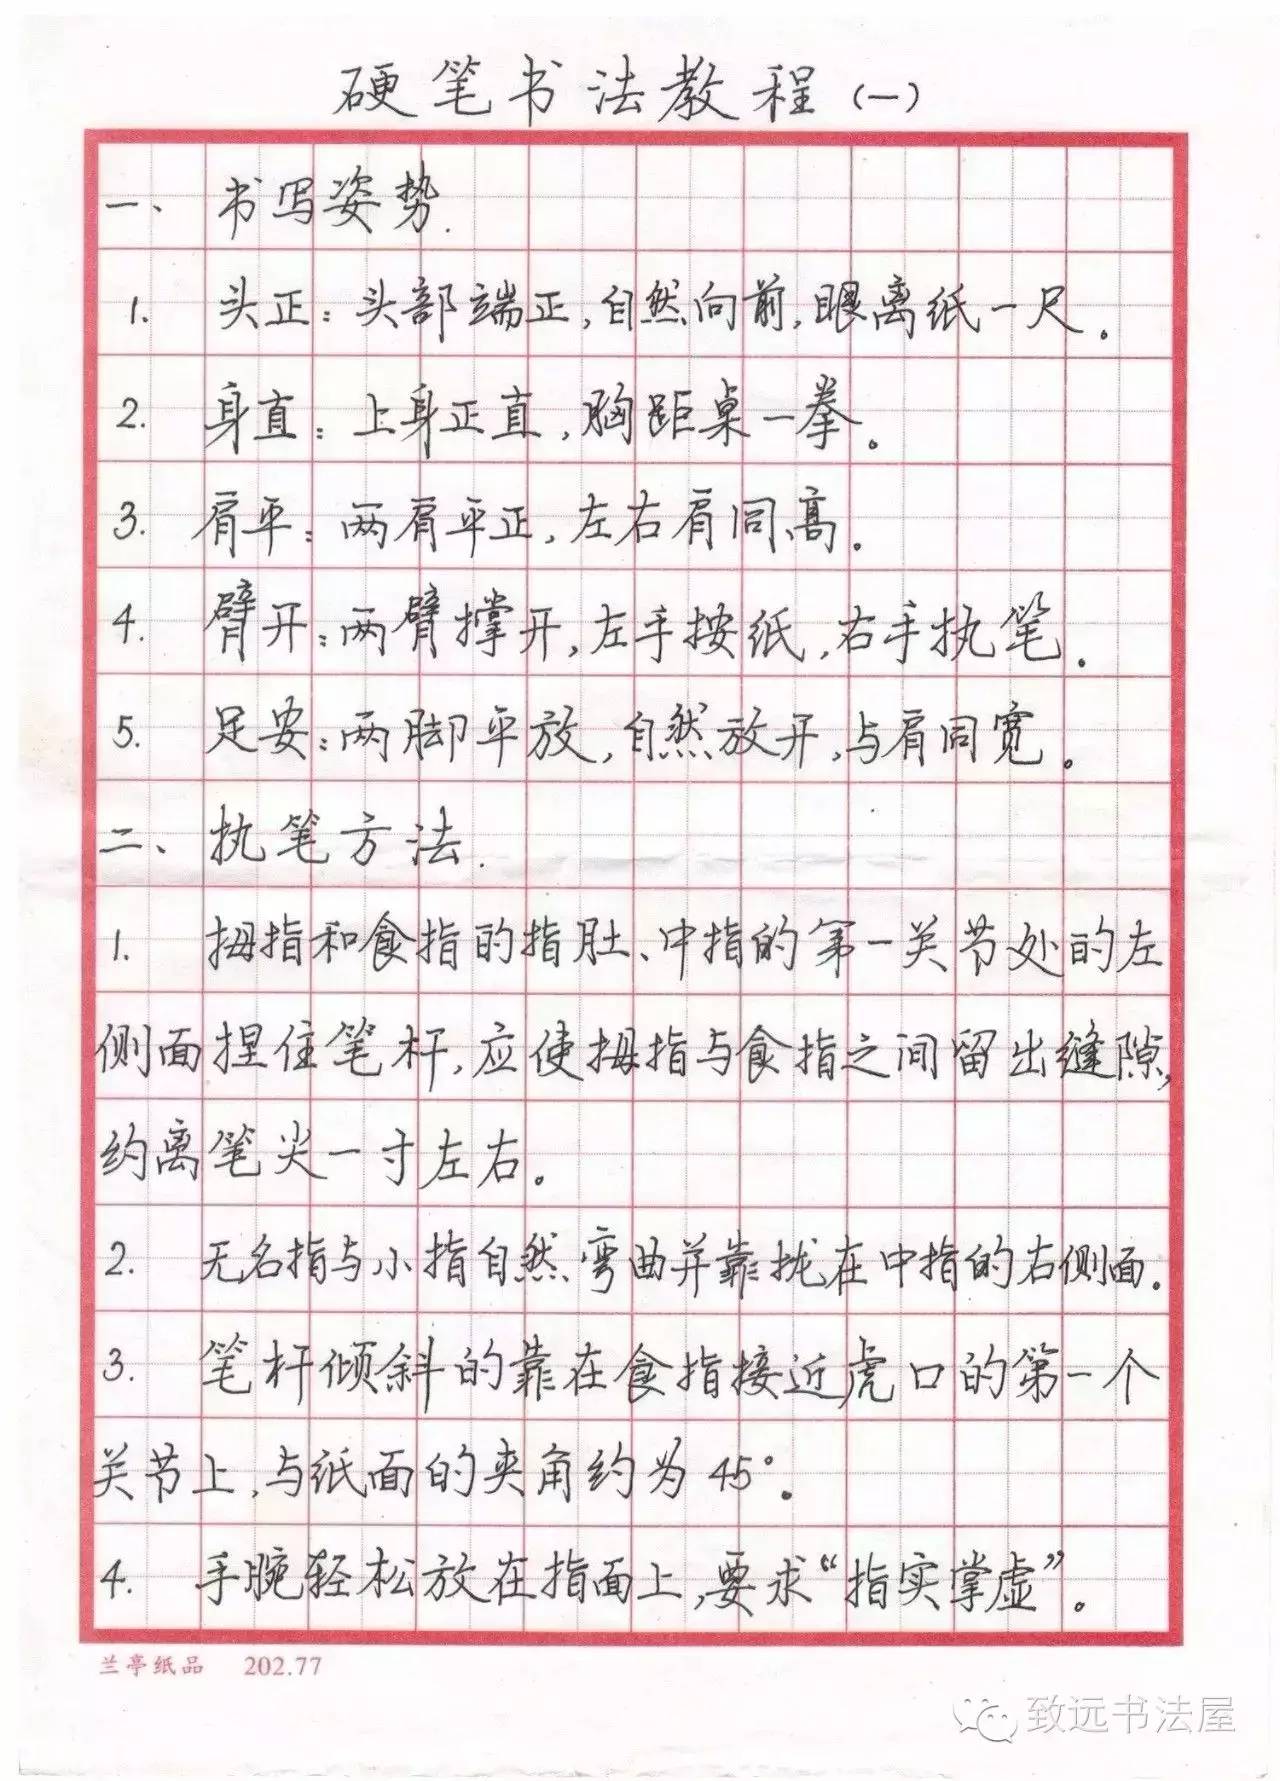 硬笔书法教程(一)
一、书写姿势.
1. 头正：头部端正,自然向前,眼离纸一尺。
2. 身直：上身正直,胸距桌一拳。
3. 肩平：两肩平正,左右肩同高。
4. 臂开：两臂撑开,左手按纸,右手执笔。
5. 足安：两脚平放,自然放开,与肩同宽。
二、执笔方法.
1. 拇指和食指的指肚、中指的第一关节处的左
侧面捏住笔杆,应使拇指与食指之间留出缝隙,
约离笔尖一寸左右。
2. 无名指与小指自然弯曲并靠拢在中指的右侧面.
3. 笔杆倾斜的靠在食指接近虎口的第一个
关节上,与纸面的夹角约为45°。
4. 手腕轻松放在指面上,要求“指实掌虚”。
兰亭纸品 202.77
致远书法屋